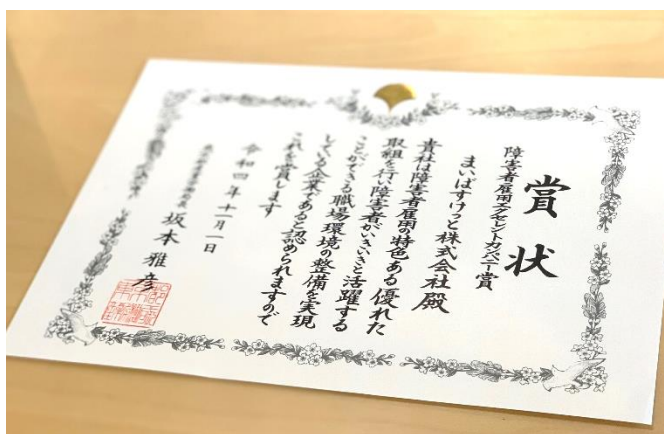 賞状
障害者雇用エクセレントカンパニー賞
まいばすけっと株式会社殿
貴社は障害者雇用の特色ある優れた
取組を行い障害者がいきいきと活躍する
ことができる職場環境の整備を実現
している企業であると認められますので
これを賞します
令和四年十一月一日
坂本雅彦